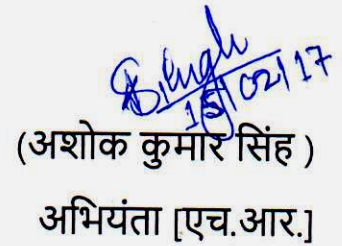 15/02/17
(अशोक कुमार सिंह )
अभियंता [एच.आर.]